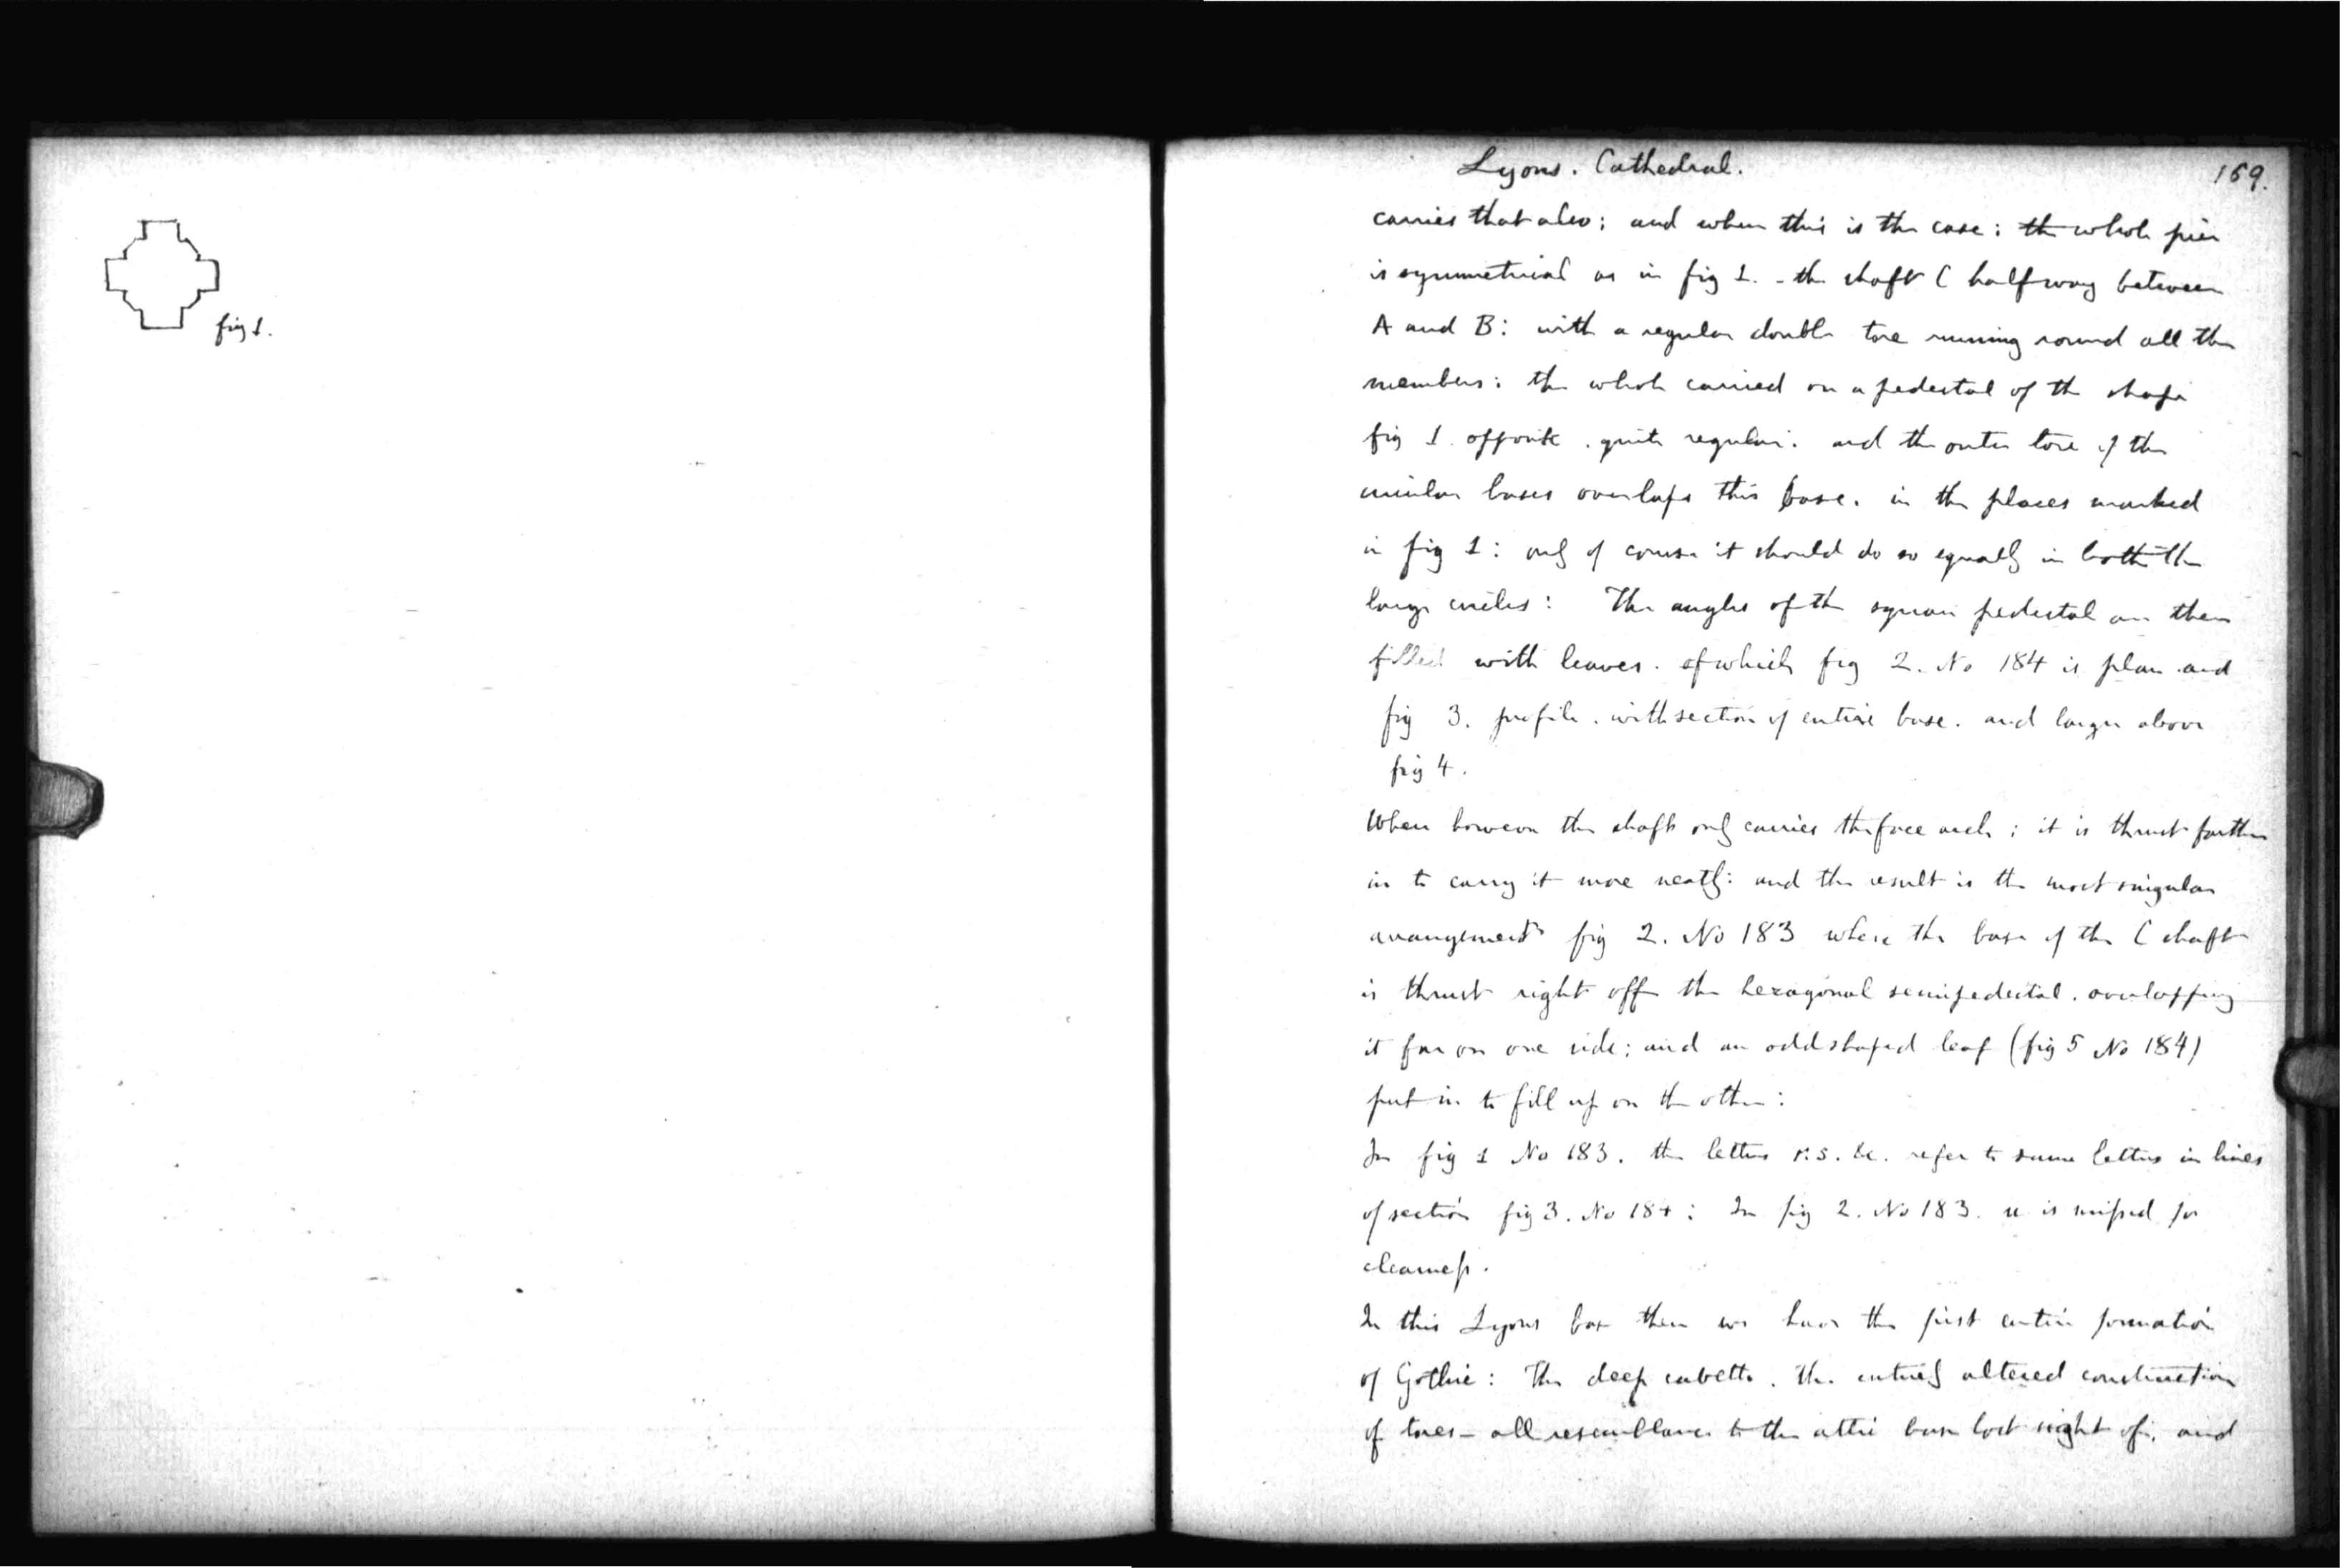 fig 1.
Lyons. Cathedral.
169.
carries that also; and when this is the case; the whole pier
is symmetrical as in fig 1. - the shaft C halfway between
A and B: with a regular double tore running round all the
members: the whole carried on a pedestal of the shape
fig 1 opposite. quite regular. and the outer tore of the
circular bases overlaps this base. in the places marked
in fig 1: only of course it should do so equally in both the
large circles: The angles of the square pedestal are then
filled with leaves. of which fig 2. No 184 is plan and
fig 3. profile. with section of entire base. and larger above
fig 4.
When however the shaft only carries the face arch; it is thrust farther
in to carry it more neatly: and the result is the most singular
arrangement fig 2. No 183 where the base of the C shaft
is thrust right off the hexagonal semipedestal. overlapping
it far on one side; and an odd shaped leaf (fig 5 No 184)
put in to fill up on the other:
In fig 1 No 183. the letters r. s. &c. refer to same letters in lines
of section fig 3. No 184: In fig 2. No 183. u is missed for
clearness.
In this Lyons base then we have the first entire formation
of Gothic: The deep cavetto. the entirely altered construction
of tores - all resemblance to the attic base lost sight of; and